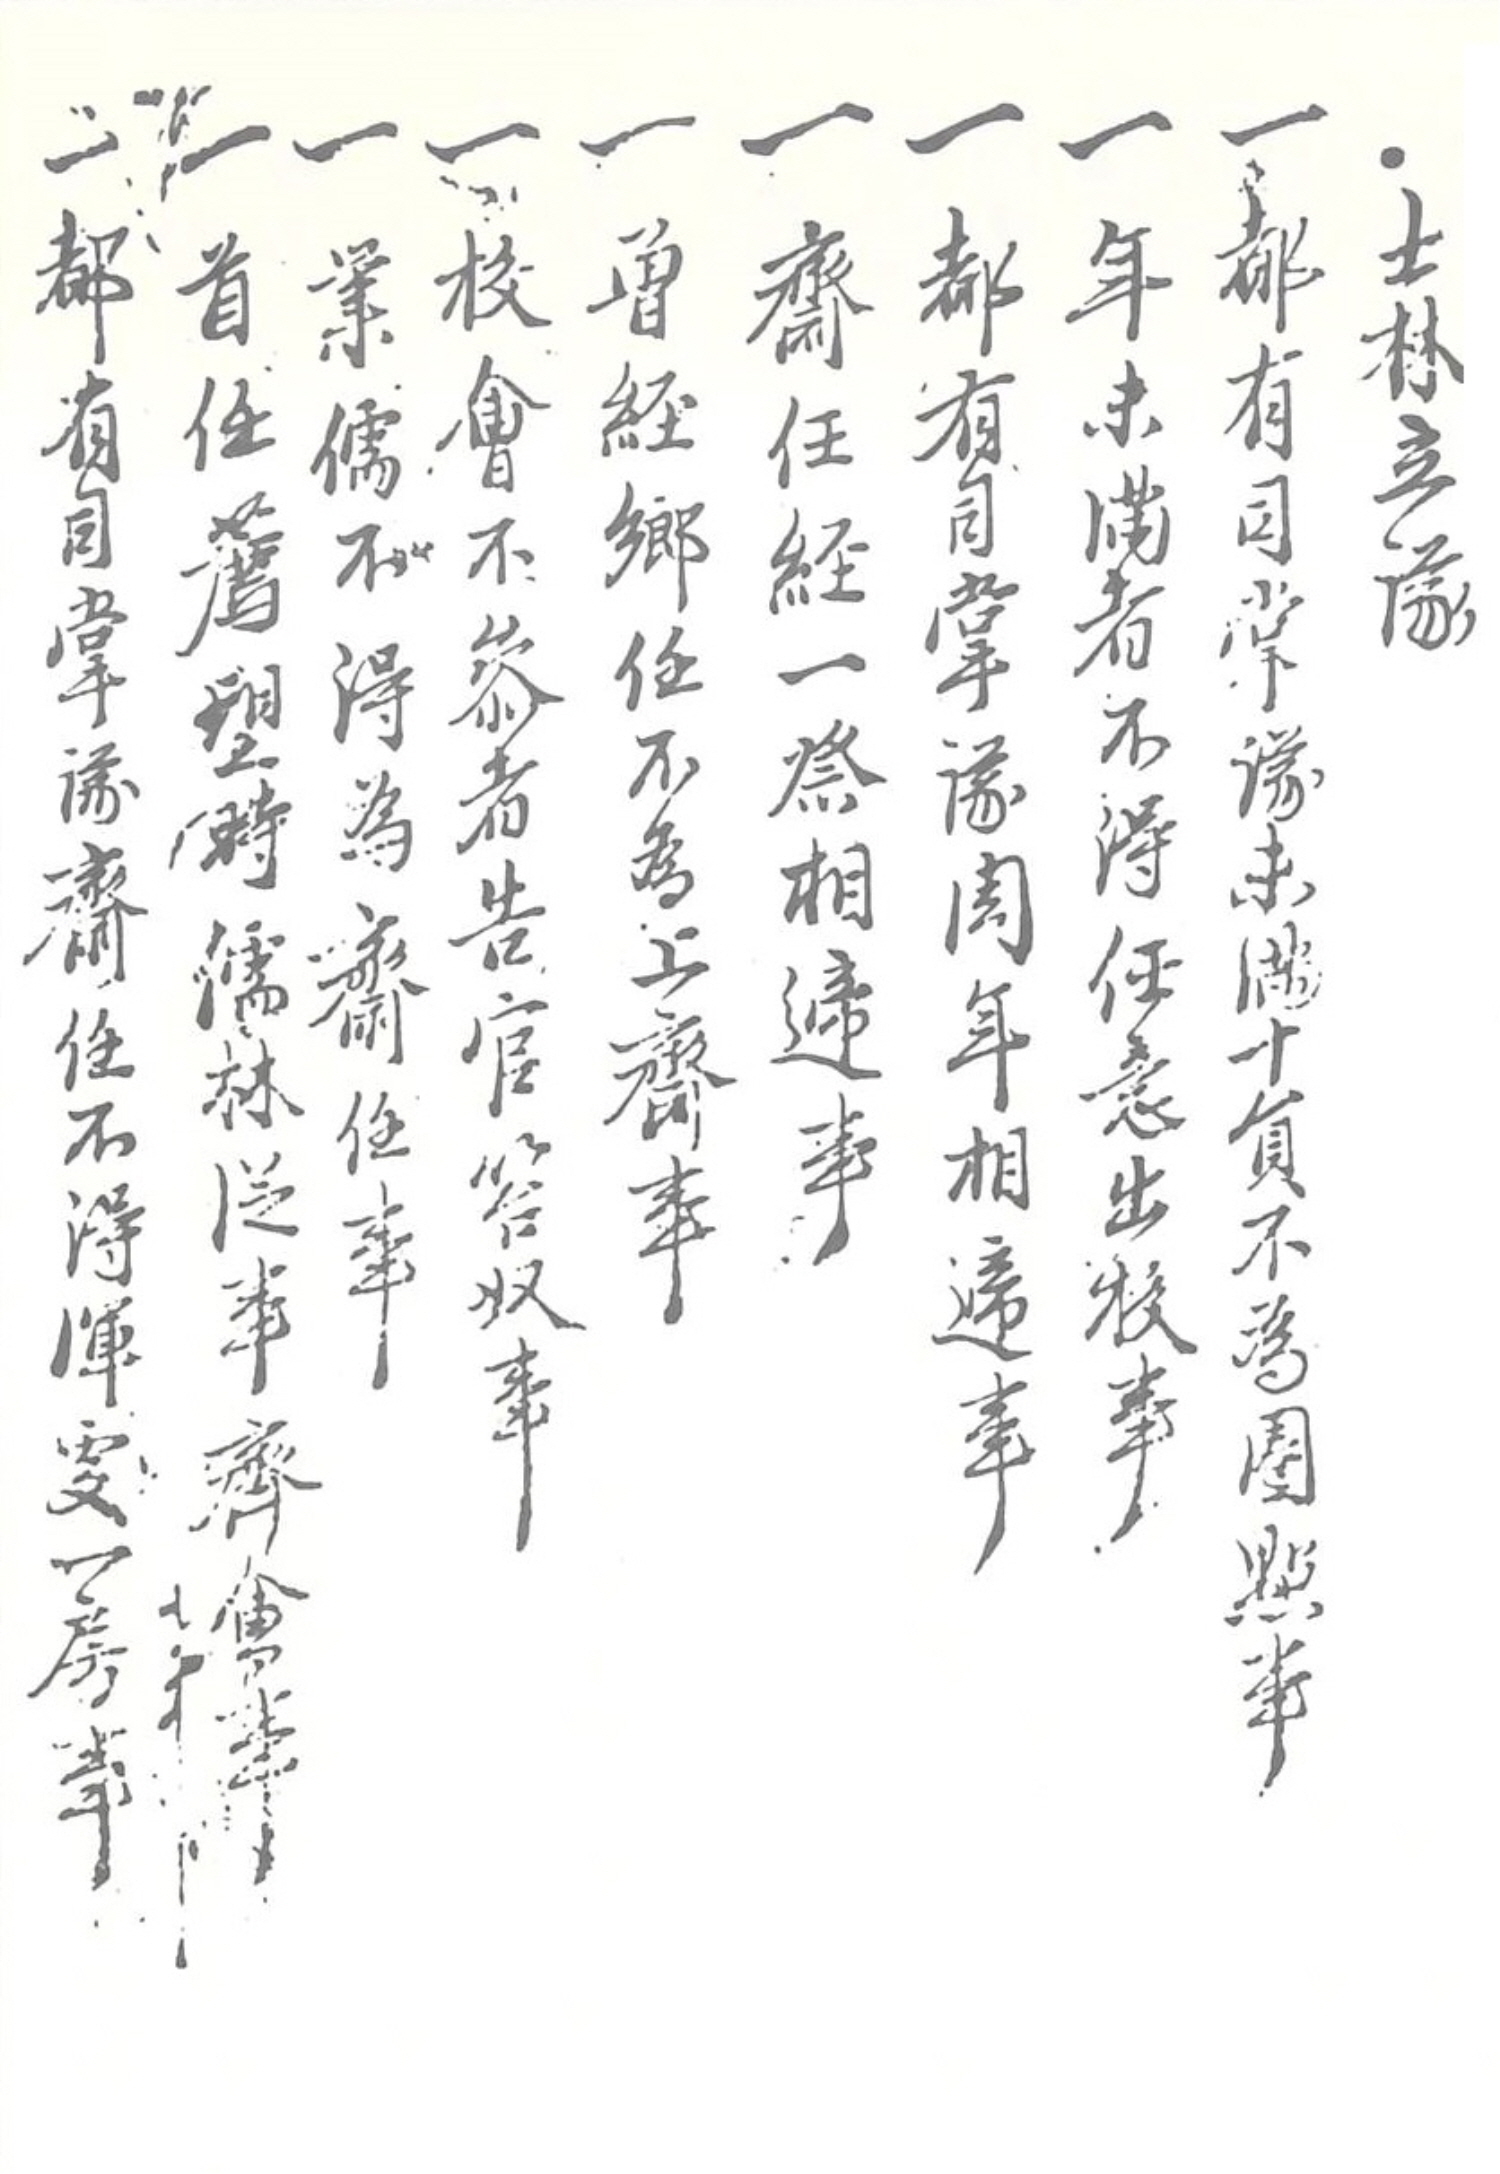 士林立議
一 都有司掌議未滿十員不爲圈點事
一 年未滿者不得任意出校事
一 都有司掌議周年相遞事
一 齋任経一祭相遞事
一 曽経鄉任不爲上齋事
一 校會不叅者告官笞収事
一 業儒不得為齋任事
一 首任薦望時儒林從事齊會事
一 都有司掌議齋任不得渾雯一房事